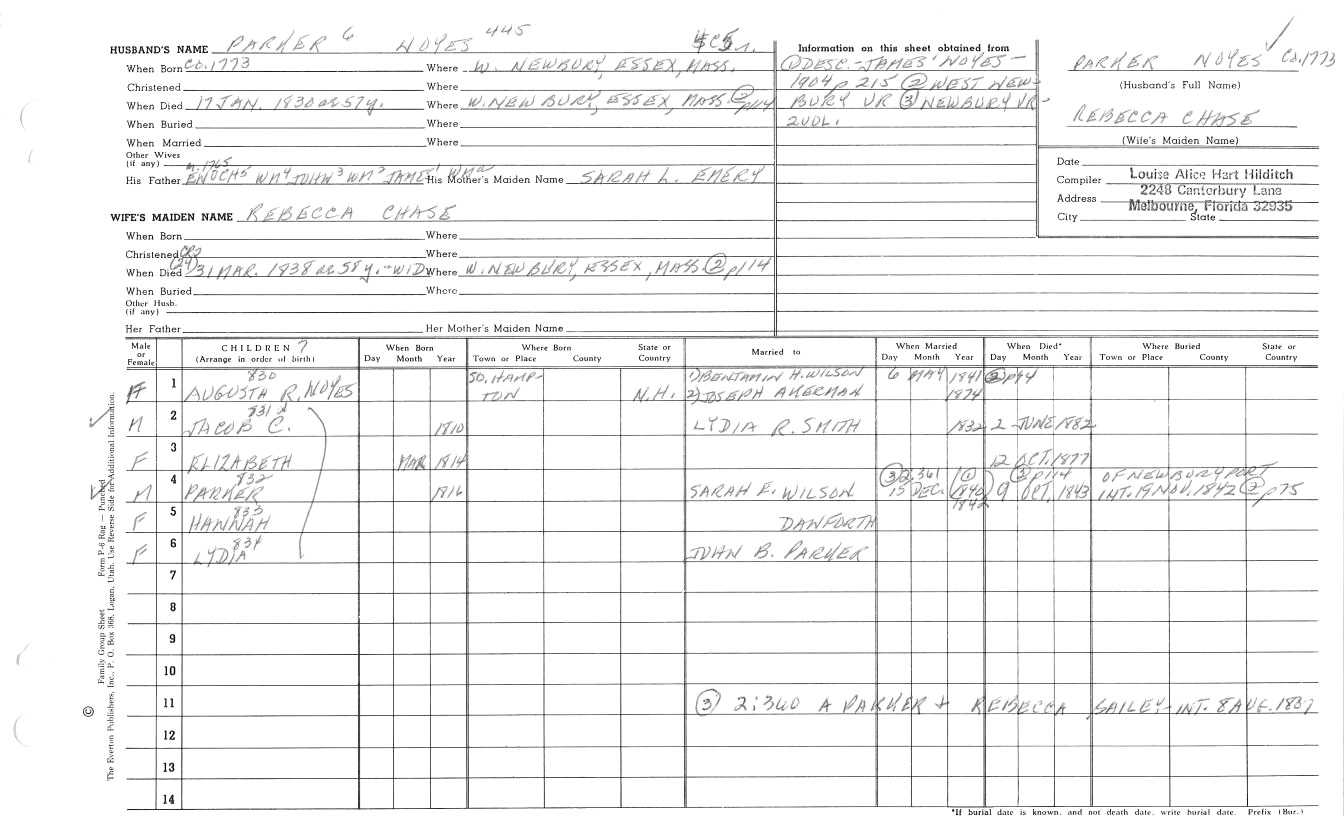 HUSBAND'S NAME PARKER 6 NOYES 445
When Born Co. 1773 Where W. NEWBURY, ESSEX, MASS.
Christened Where
When Died 17 JAN. 1830 ae 57y. Where W. NEWBURY, ESSEX, MASS. ② p114
When Buried Where
When Married Where
Other Wives
(if any) m. 1765
His Father ENOCH5 WM4 JOHN3 WM2 JAMES1 WMa His Mother's Maiden Name SARAH L. EMERY
WIFE'S MAIDEN NAME REBECCA CHASE
When Born Where
Christened CR2 Where
(24)
When Died 31 MAR. 1838 ae 58y. - WID. Where W. NEWBURY, ESSEX, MASS. ② p114
When Buried Where
Other Husb.
(if any)
Her Father Her Mother's Maiden Name
Information on this sheet obtained from
① DESC. - JAMES' NOYES -
1904 p 215 ② WEST NEW-
BURY VR ③ NEWBURY VR -
2 VOL.
PARKER NOYES Co. 1773
(Husband's Full Name)
REBECCA CHASE
(Wife's Maiden Name)
Date
Compiler Louise Alice Hart Hilditch
Address 2248 Canterbury Lane
Melbourne, Florida 32935
City State
Male or Female CHILDREN 7 (Arrange in order of birth) When Born Day Month Year Where Born Town or Place County State or Country Married to When Married Day Month Year When Died* Day Month Year Where Buried Town or Place County State or Country
830 SO. HAMP- 1) BENJAMIN H. WILSON 6 MAY 1841 ② p94
F 1 AUGUSTA R. NOYES TON N.H. 2) JOSEPH AKERMAN 1874
831
M 2 JACOB C. 1810 LYDIA R. SMITH 1832 2 JUNE 1882
F 3 ELIZABETH MAR 1814 12 OCT. 1877
832 ③ 2:361 ① ③ p114 OF NEWBURYPORT
M 4 PARKER 1816 SARAH E. WILSON 15 DEC. 1840 9 OCT. 1843 INT. 19 NOV. 1842 ② p75
1842
833
F 5 HANNAH DANFORTH
834
F 6 LYDIA JOHN B. PARKER
7
8
9
10
11 ③ 2:360 A PARKER + REBECCA BAILEY - INT. 8 AUG. 1837
12
13
14
*If burial date is known, and not death date, write burial date. Prefix (Bur.)
© Family Group Sheet Form P-6 Rag — Punched
The Everton Publishers, Inc., P. O. Box 368, Logan, Utah. Use Reverse Side for Additional Information.